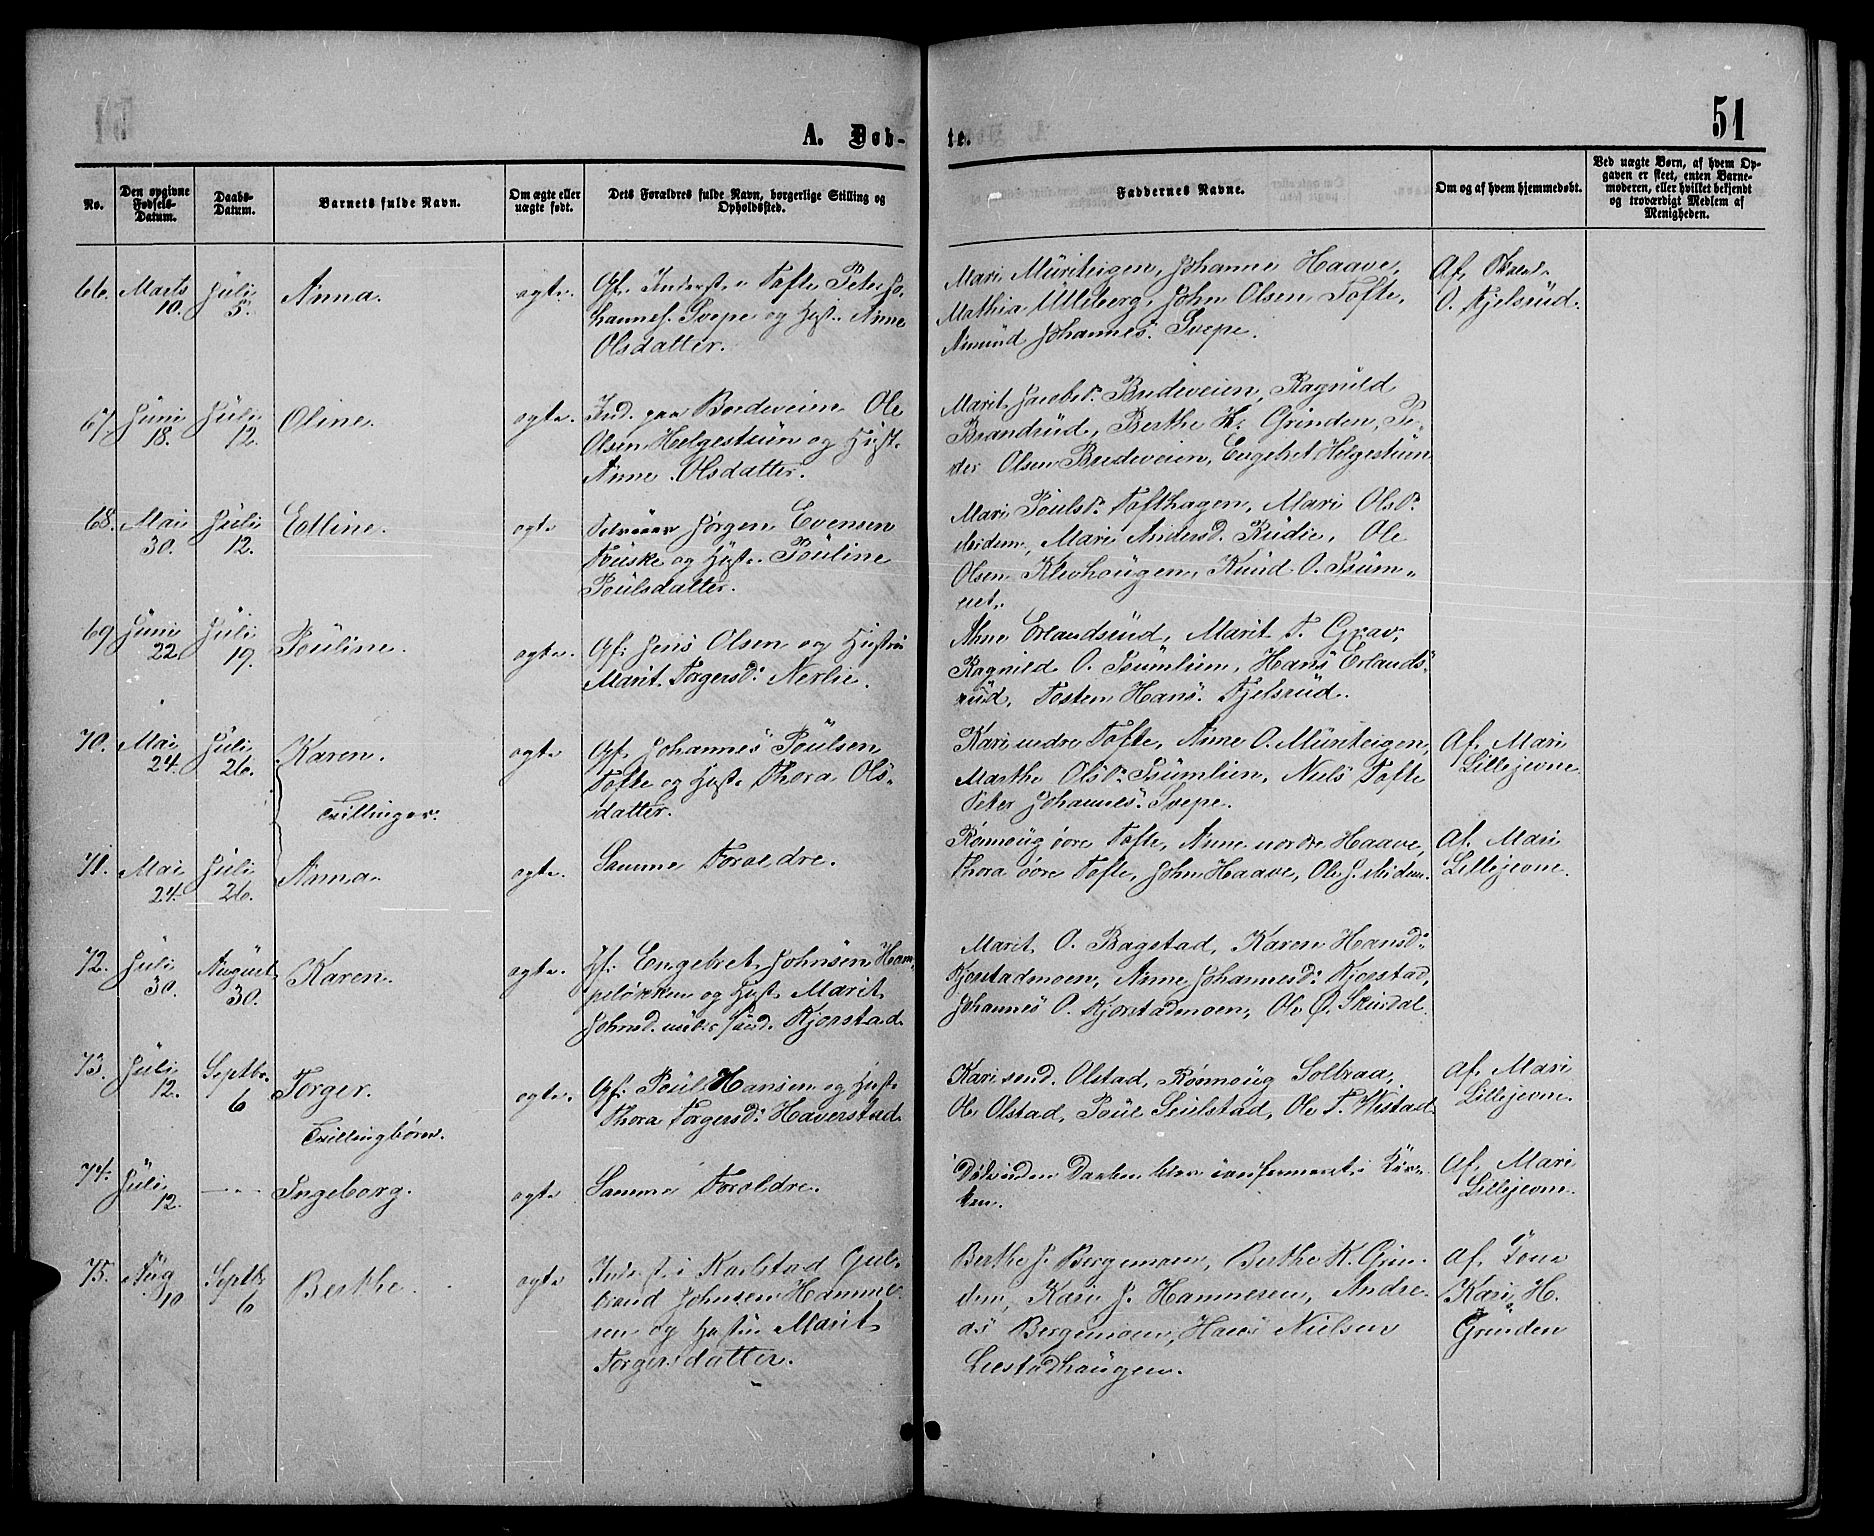 51
A. Døb-
te.
No.
Den opgivne
Fødsels-
Datum.
Daabs-
Datum.
Barnets fulde Navn.
Om ægte eller
uægte født.
Dets Forældres fulde Navn, borgerlige Stilling og
Opholdssted.
Faddernes Navne.
Om og af hvem hjemmedøbt.
Ved uægte Børn, af hvem Op-
gaven er skeet, enten Barne-
moderen, eller hvilket bekjendt
og troværdigt Medlem af
Menigheden.
66. Marts
10.
Juli
5.
Anna.
ægte.
Gf. Inderst i Tofte Peter Jo-
hannes. Svepe og Hust. Anne
Olsdatter.
Mari Muriteigen, Johanne Haave,
Mathia Ulleberg, John Olsen Tofte,
Amund Johannes. Svepe.
Af
O. Fjelsrud.
67 Juni
18.
Juli
12.
Oline.
ægte.
Ind. paa Bredeveien Ole
Olsen Helgestuen og Hust.
Anne Olsdatter.
Marit Jacobsd. Bredeveien, Ragnild
Brandrud, Berthe K. Grinden, Pe-
der Olsen Bredeveien, Engebret Helgestuen
68. Mai
30.
Juli
12.
Edline.
ægte
Jørgen Evensen
og Hust. Pouline
Poulsdatter.
Mari Poulsd. Tofthagen, Mari Olsd.
Midem, Mari Andersd. Rudie, Ole
Olsen Klevhaugen, Knud O.
69 Juni
22
Juli
19.
Pouline.
ægte.
Gf. Jens Olsen og Hustru
Marit Torgersd. Nerlie.
Anne Erlandsrud, Marit T. Grav,
Ragnild O. Bumlien, Hans Erlands-
rud, Tosten Hans. Fjelsrud.
70. Mai
24.
Juli
26.
Karen.
Tvillinger.
ægte
Gf. Johannes Poulsen
Tofte og Hust. Thora Ols-
datter.
Kari nedre Tofte, Anne O. Muriteigen,
Marthe Olsd. Bumlien, Niels Tofte
Peter Johannes. Svepe.
Af Mari
Lillejevne
71. Mai
24.
Juli
26.
Anna.
ægte.
Samme Forældre.
Rønnoug øvre Tofte, Anne nordre Haave,
Thora øvre Tofte, John Haave, Ole J. Midem.
Af Mari
Lillejevne.
72. Juli
30.
August
30.
Karen.
ægte.
Engebret Johnsen Ham-
peløkken og Hust Marit
Johnsd. Kjorstad
Marit O. Bagstad, Karen Hansd.
Kjorstadmoen, Anne Johannesd. Kjorstad,
Johannes O. Kjorstadmoen, Ole Ø. Skurdal.
73. Juli
12.
Septbr.
6
Torger.
Tvillingbørn.
ægte.
Gf. Poul Hansen og Hust.
Thora Torgersd. Haverstad
Kari sønd. Olstad, Rønnoug Solbraa,
Ole Olstad, Poul Seielstad, Ole T. Vistad
Af Mari
Lillejevne.
74. Juli
12.
— " —
Ingeborg.
ægte
Samme Forældre.
Døde inden Daaben blev confirmeret i Kir-
ken.
Af Mari
Lillejevne.
75. Aug
10
Septbr
6
Berthe.
ægte
Inderst i Karlstad Gul-
brand Johnsen Hamme-
ren og Hustru Marit
Torgersdatter.
Berthe J. Bergemoen, Berthe K. Grin-
den, Kari J. Hammeren, Andre-
as Bergemoen, Hans Nielsen
Liestadhaugen.
Af
Kari H.
Grinden